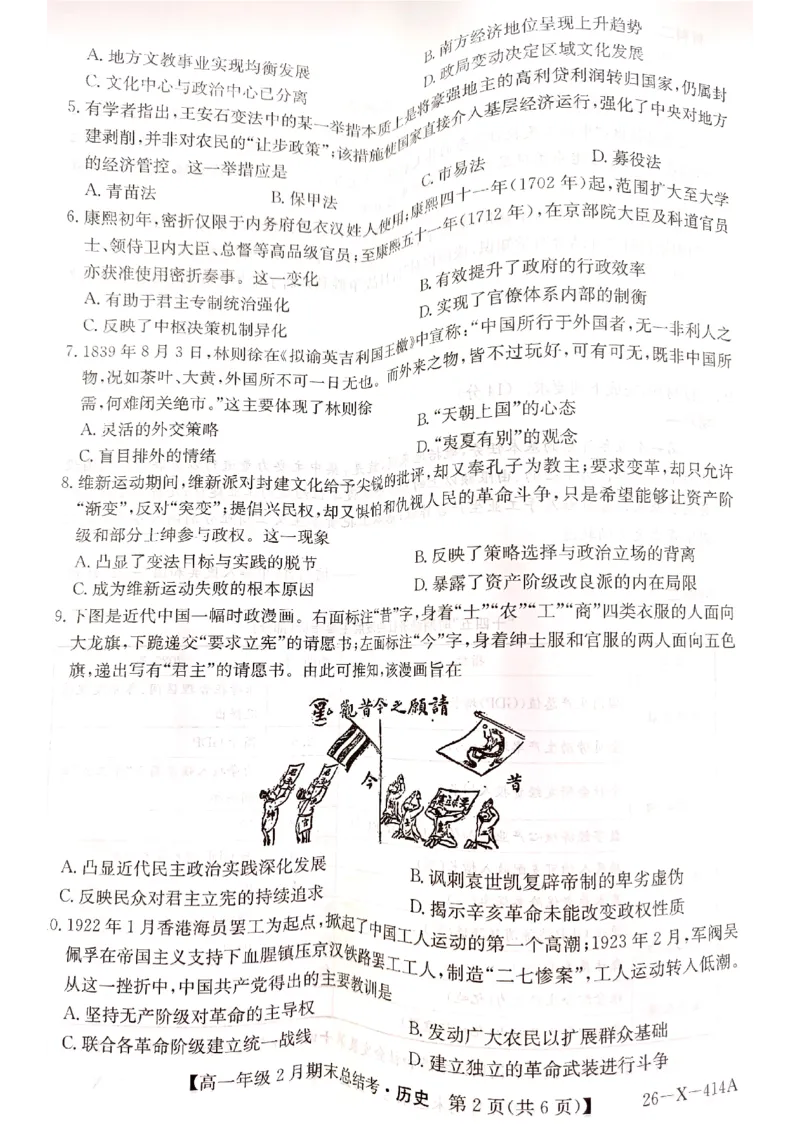 A. 地方文教事业实现均衡发展
B. 南方经济地位呈现上升趋势
C. 文化中心与政治中心已分离
D. 政局变动决定区域文化发展
5. 有学者指出,王安石变法中的某一举措本质上是将豪强地主的高利贷利润转归国家,仍属封
建剥削,并非对农民的“让步政策”;该措施使国家直接介入基层经济运行,强化了中央对地方
的经济管控。这一举措应是
A. 青苗法 B. 保甲法 C. 市易法 D. 募役法
6. 康熙初年,密折仅限于内务府包衣汉姓人使用;康熙四十一年(1702 年)起,范围扩大至大学
士、领侍卫内大臣、总督等高品级官员;至康熙五十一年(1712 年),在京部院大臣及科道官员
亦获准使用密折奏事。这一变化
A. 有助于君主专制统治强化
B. 有效提升了政府的行政效率
C. 反映了中枢决策机制异化
D. 实现了官僚体系内部的制衡
7. 1839 年 8 月 3 日,林则徐在《拟谕英吉利国王檄》中宣称:“中国所行于外国者,无一非利人之
物,况如茶叶、大黄,外国所不可一日无也。而外来之物,皆不过玩好,可有可无,既非中国所
需,何难闭关绝市。”这主要体现了林则徐
A. 灵活的外交策略
B. “天朝上国”的心态
C. 盲目排外的情绪
D. “夷夏有别”的观念
8. 维新运动期间,维新派对封建文化给予尖锐的批评,却又奉孔子为教主;要求变革,却只允许
“渐变”,反对“突变”;提倡兴民权,却又惧怕和仇视人民的革命斗争,只是希望能够让资产阶
级和部分士绅参与政权。这一现象
A. 凸显了变法目标与实践的脱节
B. 反映了策略选择与政治立场的背离
C. 成为维新运动失败的根本原因
D. 暴露了资产阶级改良派的内在局限
9. 下图是近代中国一幅时政漫画。右面标注“昔”字,身着“士”“农”“工”“商”四类衣服的人面向
大龙旗,下跪递交“要求立宪”的请愿书;左面标注“今”字,身着绅士服和官服的两人面向五色
旗,递出写有“君主”的请愿书。由此可推知,该漫画旨在
觀昔今之願請
今
昔
A. 凸显近代民主政治实践深化发展
B. 讽刺袁世凯复辟帝制的卑劣虚伪
C. 反映民众对君主立宪的持续追求
D. 揭示辛亥革命未能改变政权性质
0. 1922 年 1 月香港海员罢工为起点,掀起了中国工人运动的第一个高潮;1923 年 2 月,军阀吴
佩孚在帝国主义支持下血腥镇压京汉铁路罢工工人,制造“二七惨案”,工人运动转入低潮。
从这一挫折中,中国共产党得出的主要教训是
A. 坚持无产阶级对革命的主导权
B. 发动广大农民以扩展群众基础
C. 联合各革命阶级建立统一战线
D. 建立独立的革命武装进行斗争
【高一年级 2 月期末总结考·历史 第 2 页(共 6 页)】 26-X-414A